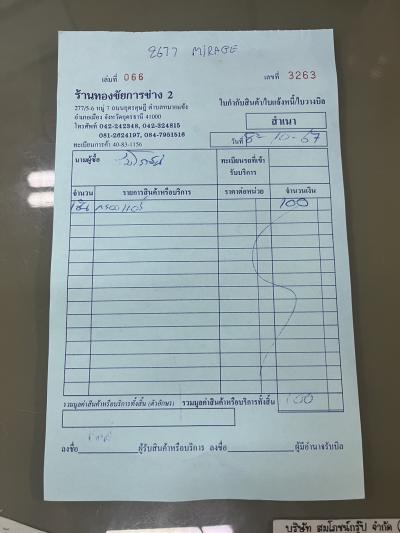 2677 MIRAGE
เล่มที่ 066 เลขที่ 3263
ร้านทองชัยการช่าง 2
277/5-6 หมู่ 7 ถนนอุดรดุษฎี ตำบลหมากแข้ง
อำเภอเมือง จังหวัดอุดรธานี 41000
โทรศัพท์ 042-242348, 042-324815
081-2624197, 084-7951516
ทะเบียนการค้า 40-83-1156
ใบกำกับสินค้า/ใบแจ้งหนี้/ใบวางบิล
สำเนา
วันที่ 8-10-67
นามผู้ซื้อ
ทะเบียนรถที่เข้ารับบริการ
จำนวน รายการสินค้าหรือบริการ ราคาต่อหน่วย จำนวนเงิน
กรองแอร์ 100
รวมมูลค่าสินค้าหรือบริการทั้งสิ้น (ตัวอักษร) รวมมูลค่าสินค้าหรือบริการทั้งสิ้น 100
ลงชื่อ ผู้รับสินค้าหรือบริการ ลงชื่อ ผู้มีอำนาจรับบิล
บริษัท สมโภชน์กรุ๊ป จำกัด